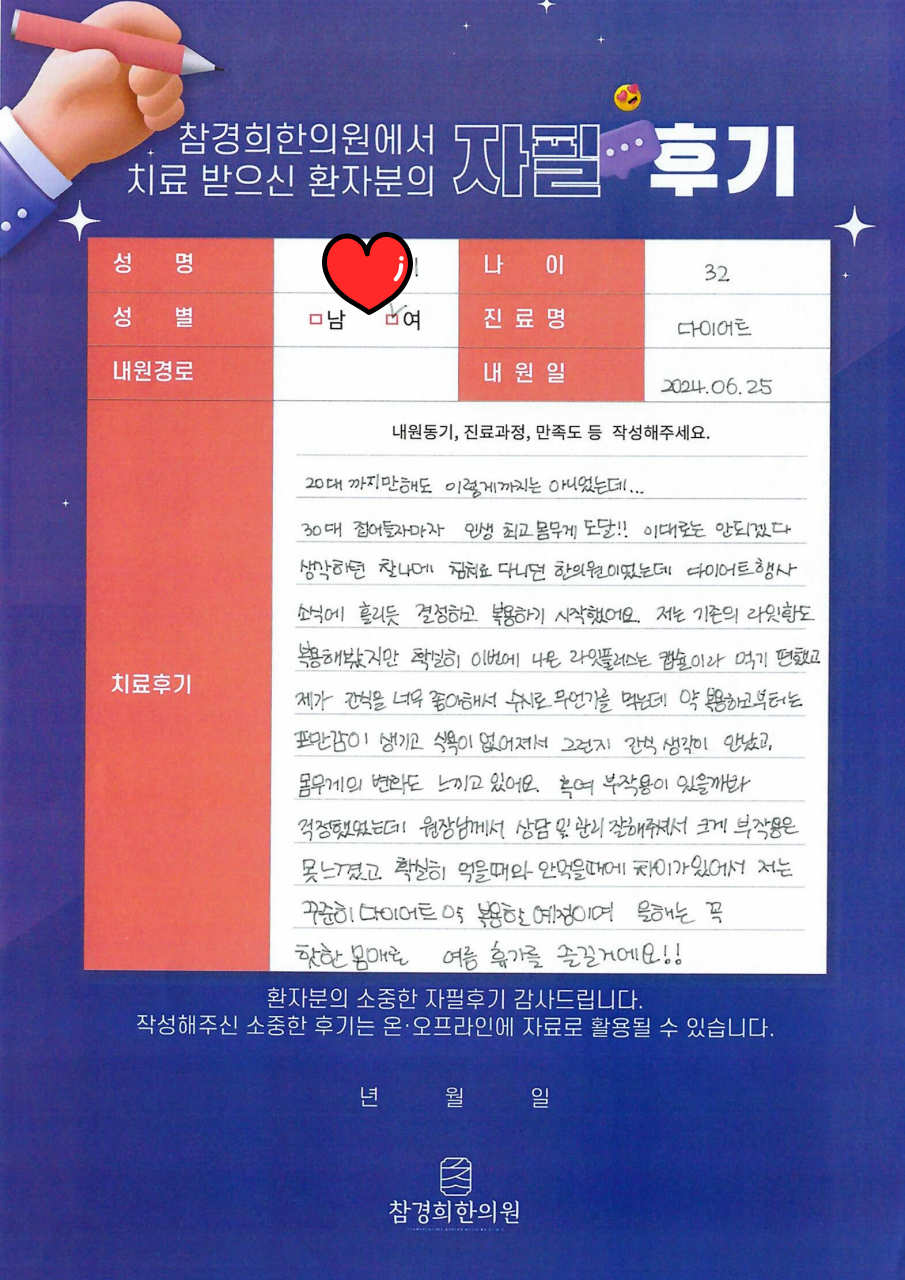 참경희한의원에서
치료 받으신 환자분의 자필 후기
성 명
나 이 32
성 별 남 여
진 료 명 다이어트
내원경로
내 원 일 2024.06.25
치료후기
내원동기, 진료과정, 만족도 등 작성해주세요.
20대 까지만해도 이렇게까지는 아니었는데...
30대 접어들자마자 인생 최고 몸무게 도달!! 이대로는 안되겠다
생각하던 찰나에 침치료 다니던 한의원이었는데 다이어트행사
소식에 홀리듯 결정하고 복용하기 시작했어요. 저는 기존의 라잇함도
복용해봤지만 확실히 이번에 나온 라잇플러스는 캡슐이라 먹기 편했고
제가 간식을 너무 좋아해서 수시로 무언가를 먹는데 약 복용하고부터는
포만감이 생기고 식욕이 없어져서 그런지 간식 생각이 안났고,
몸무게의 변화도 느끼고 있어요. 혹여 부작용이 있을까봐
걱정했었는데 원장님께서 상담 및 관리 잘해주셔서 크게 부작용은
못느꼈고 확실히 먹을때와 안먹을때에 차이가 있어서 저는
꾸준히 다이어트 약 복용할 예정이며 올해는 꼭
핫한 몸매로 여름 휴가를 즐길거에요!!
환자분의 소중한 자필후기 감사드립니다.
작성해주신 소중한 후기는 온·오프라인에 자료로 활용될 수 있습니다.
년 월 일
참경희한의원